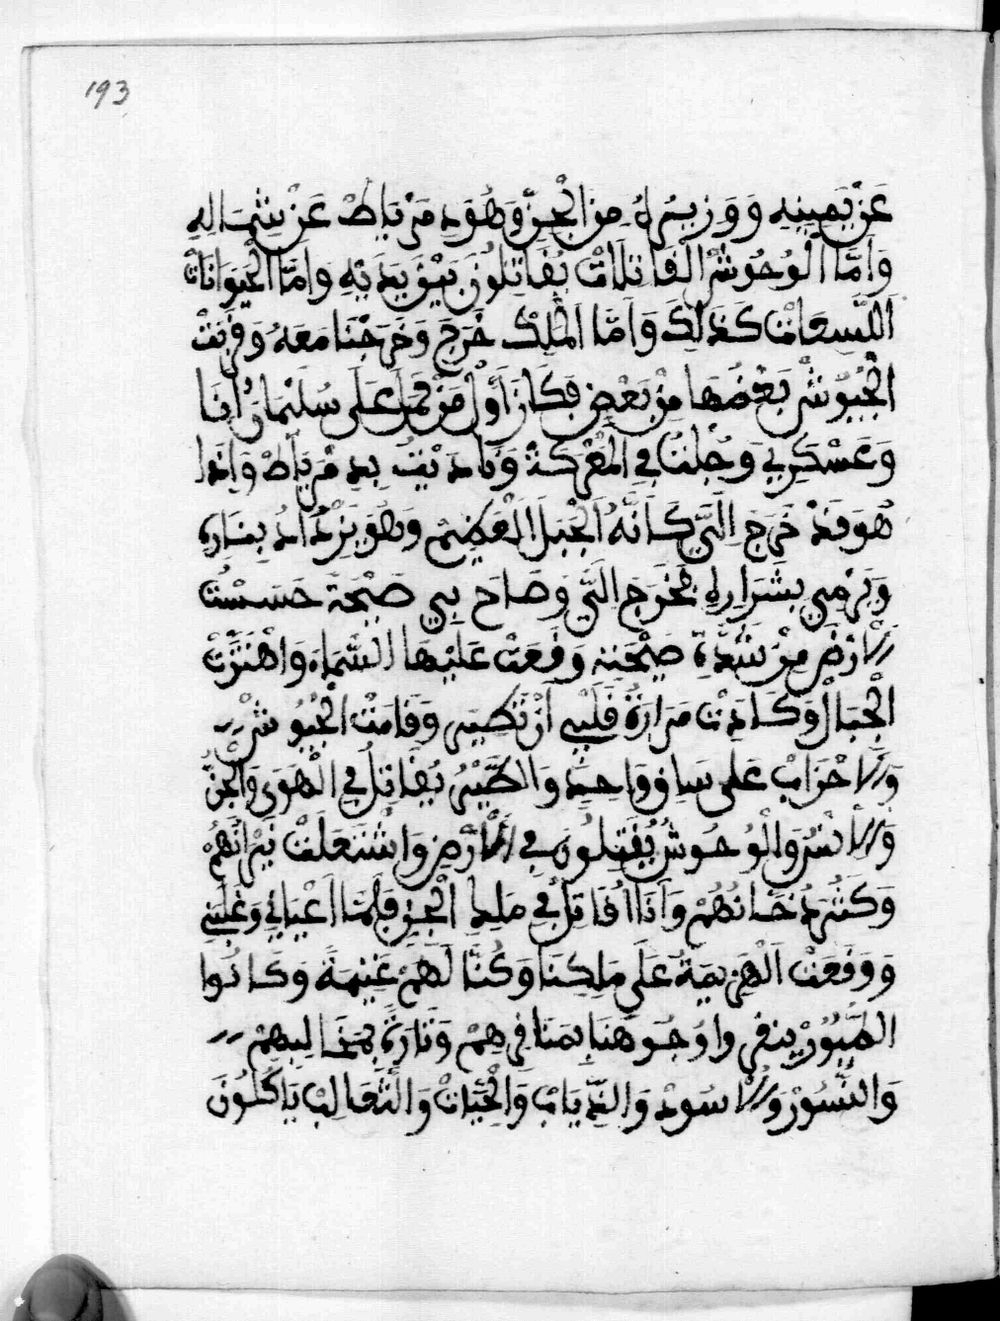 193
عَنْ يَمِينِهِ وَوَزِيرُهُ مِنَ الْجِنِّ وَهُوَ دِمَرْيَاطْ عَنْ شِمَالِهِ
وَأَمَّا الْوُحُوشُ الْقَاتِلَاتْ يُقَاتِلُونَ بَيْنَ يَدَيْهِ وَأَمَّا الْحَيَوَانَاتْ
اللَّسِعَاتْ كَذَلِكَ وَأَمَّا الْمَلِكْ خَرَجَ وَخَرَجْنَا مَعَهُ وَقَرَبَتْ
الْجُيُوشْ بَعْضُهَا مِنْ بَعْضٍ فَكَانَ أَوَّلْ مَنْ حَمَلَ عَلَى سُلَيْمَانْ أَنَا
وَعَسْكَرِي وَجُلْتُ فِي الْمَعْرَكَةْ وَنَادَيْتُ بِدِمَرْيَاطْ وَإِذَا
هُوَ قَدْ خَرَجَ إِلَيَّ كَأَنَّهُ الْجَبَلُ الْعَضِيمْ وَهُوَ يَزْدَادُ بِنَارِهِ
وَيَرْمِي بِشَرَارِهِ فَخَرَجَ إِلَيَّ وَصَاحَ بِي صَيْحَةً حَسَسْتُ
الْأَرْضَ مِنْ شِدَّةِ صَيْحَتِهِ وَقَعَتْ عَلَيْهَا السَّمَاءُ وَاهْتَزَّتْ
الْجِبَالْ وَكَادَتْ مَرَارَةُ قَلْبِي أَنْ تَطِيرَ وَقَامَتْ الْجُيُوشْ
وَالْأَحْزَابْ عَلَى سَاقٍ وَاحِدٍ وَالطَّيْرُ يُقَاتِلُ فِي الْهَوَى وَالْجِنُّ
وَالْإِنْسُ وَالْوُحُوشُ يُقَتِلُونَ فِي الْأَرْضِ وَاشْتَعَلَتْ نِيرَانُهُمْ
وَكَثُرَ دُخَانُهُمْ وَأَنَا أُقَاتِلُ فِي مَلِدِ الْجِنِّ فَلَمَّا أَعْيَانِي وَغَلَبَنِي
وَوَقَعَتْ الْهَزِيمَةُ عَلَى مَلِكِنَا وَكُنَّا لَهُمْ غَنِيمَةً وَكَانُوا
الطُّيُورْ ينقروا وُجُوهَنَا بِمَنَاقِرِهِمْ وَتَارَةً بِمَخَالِبِهِمْ
وَالنُّسُورْ وَالْأُسُودْ وَالذِّيَابْ وَالْحَيَّاتْ وَالثَّعَالِبْ يَاكُلُونَ